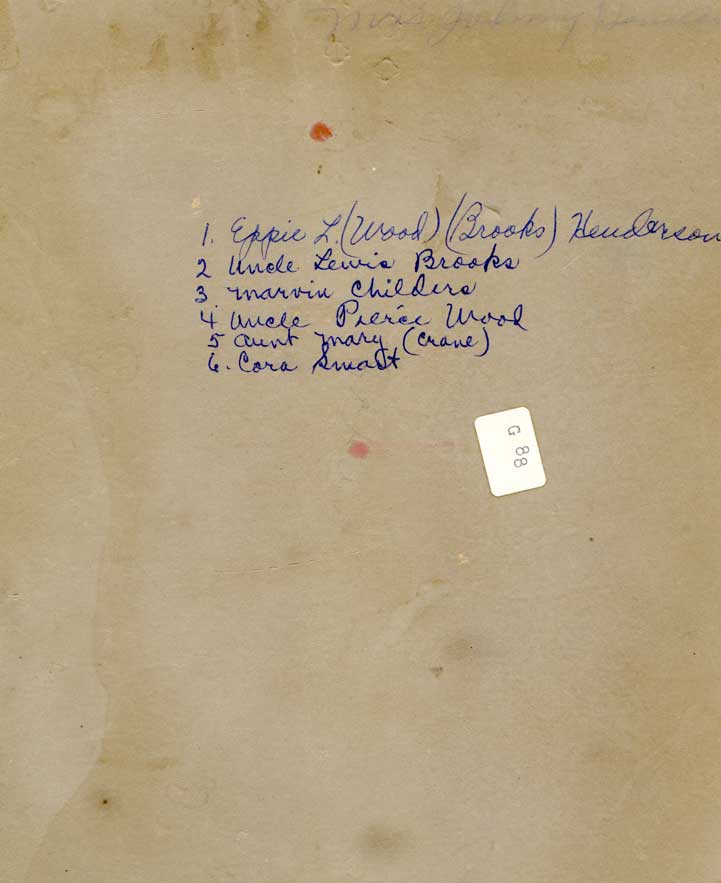 Mrs Johnny
1. Eppie L. (Wood) (Brooks) Henderson
2 Uncle Lewis Brooks
3 Marvin Childers
4. Uncle Pierce Wood
5 Aunt Mary (Crane)
6. Cora Smart
G 88